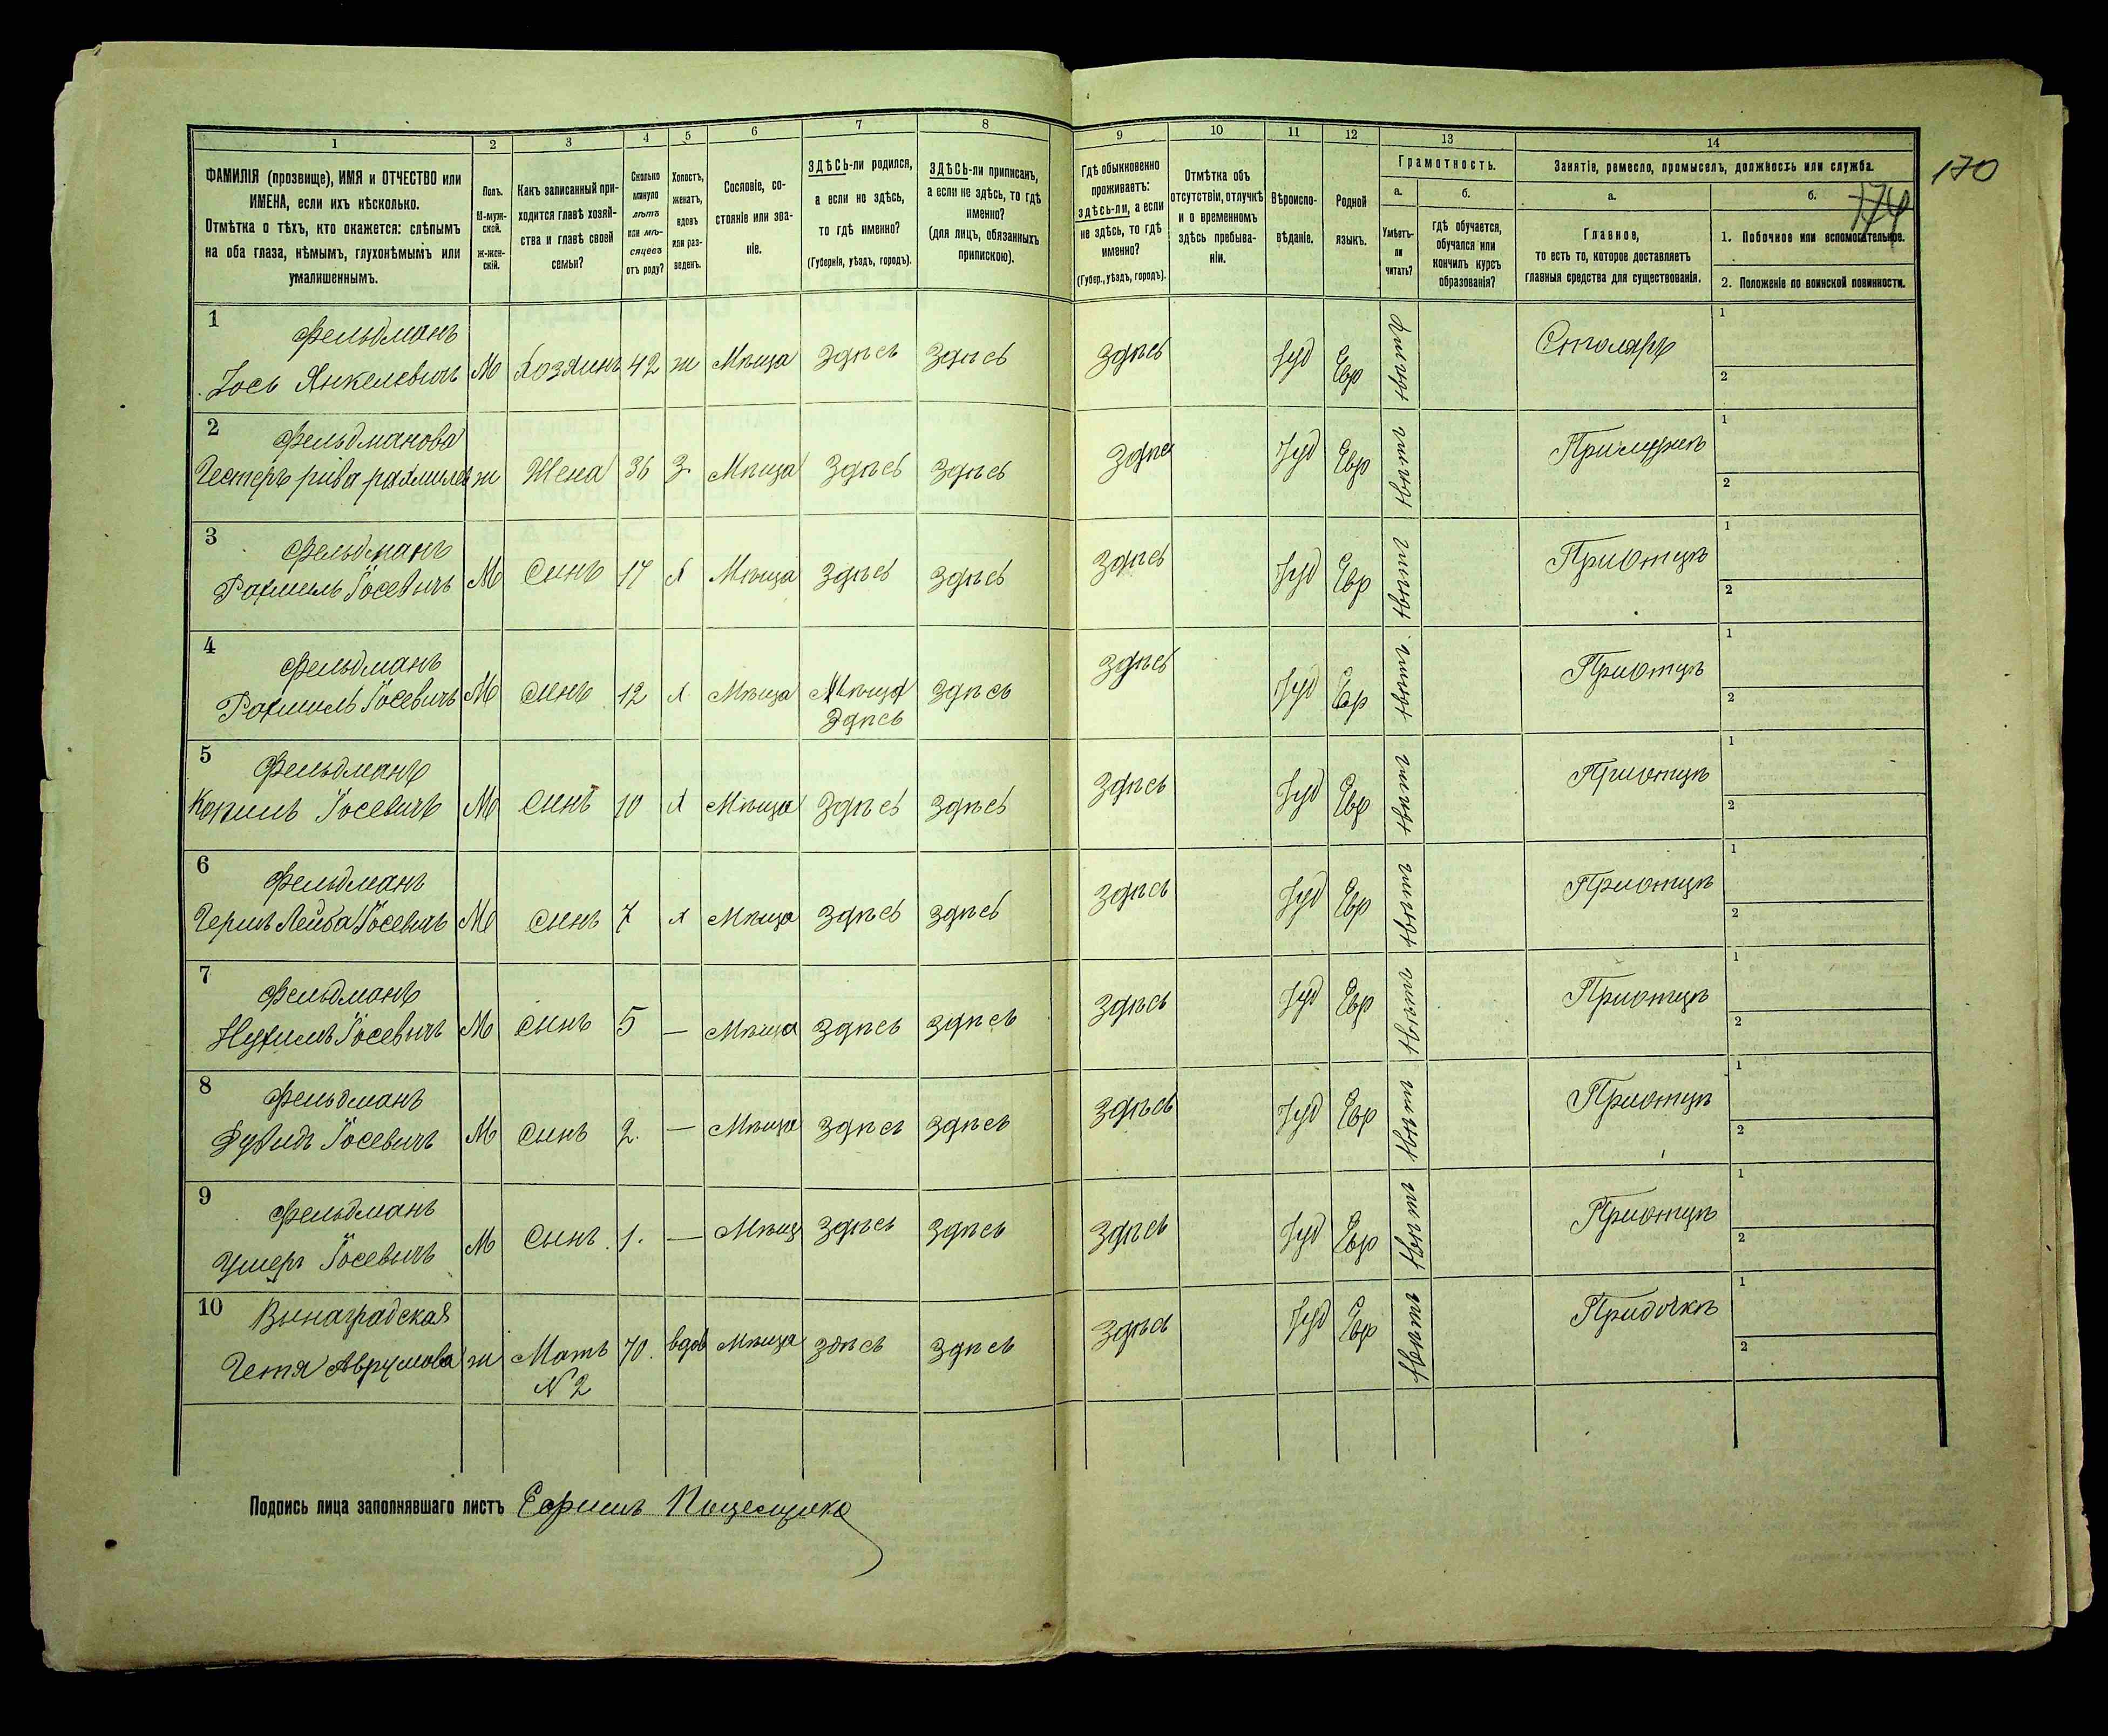 1
2
3
4
5
6
7
8
ФАМИЛІЯ (прозвище), ИМЯ и ОТЧЕСТВО или
ИМЕНА, если ихъ нѣсколько.
Отмѣтка о тѣхъ, кто окажется: слѣпымъ
на оба глаза, нѣмымъ, глухонѣмымъ или
умалишеннымъ.
Полъ.
М-муж-
ской.
Ж-жен-
скій.
Какъ записанный при-
ходится главѣ хозяй-
ства и главѣ своей
семьи?
Сколько
минуло
лѣтъ
или мѣ-
сяцевъ
отъ роду?
Холостъ,
женатъ,
вдовъ
или раз-
веденъ.
Сословіе, со-
стояніе или зва-
ніе.
ЗДѢСЬ-ли родился,
а если не здѣсь,
то гдѣ именно?
(Губернія, уѣздъ, городъ).
ЗДѢСЬ-ли приписанъ,
а если не здѣсь, то гдѣ
именно?
(для лицъ, обязанныхъ
припискою).
1
Фельдманъ
Іось Янкелевичъ М Хозяинъ 42 ж Мѣща Здѣсь Здѣсь
2
Фельдманова
рива ж Жена 36 З. Мѣща Здѣсь Здѣсь
3
Фельдманъ
Рахмиль Іосевичъ М Сынъ 17 х Мѣща Здѣсь Здѣсь
4
Фельдманъ
Рахмиль Іосевичъ М сынъ 12 х Мѣща Мѣща Здѣсь
Здѣсь
5
Фельдманъ
Копиль Іосевичъ М Сынъ 10 х Мѣща Здѣсь Здѣсь
6
Фельдманъ
Гершъ Лейба Іосевичъ М сынъ 7 х Мѣща Здѣсь Здѣсь
7
Фельдманъ
Нухимъ Іосевичъ М сынъ 5 — Мѣща Здѣсь Здѣсь
8
Фельдманъ
Дувидъ Іосевичъ М сынъ 2. — Мѣща Здѣсь Здѣсь
9
Фельдманъ
Ушеръ Іосевичъ М Сынъ. 1. — Мѣщ Здѣсь Здѣсь
10
Винаградская
Гетя Аврумова ж Мать 70. вдов Мѣща здѣсь Здѣсь
N 2
Подпись лица заполнявшаго листъ
9
10
11
12
13
14
Гдѣ обыкновенно
проживаетъ:
здѣсь-ли, а если
не здѣсь, то гдѣ
именно?
(Губер., уѣздъ, городъ).
Отмѣтка объ
отсутствіи, отлучкѣ
и о временномъ
здѣсь пребыва-
ніи.
Вѣроиспо-
вѣданіе.
Родной
языкъ.
Грамотность.
а.
Умѣетъ-
ли
читать?
б.
гдѣ обучается,
обучался или
кончилъ курсъ
образованія?
Занятіе, ремесло, промыселъ, должность или служба.
а.
Главное,
то есть то, которое доставляетъ
главныя средства для существованія.
б.
1. Побочное или вспомогательное.
2. Положеніе по воинской повинности.
170
174
Здѣсь Іуд Евр Столяръ
1
2
Здѣсь Іуд Евр При мужѣ
1
2
Здѣсь Іуд Евр При отцѣ
1
2
Здѣсь Іуд Евр При отцѣ
1
2
Здѣсь Іуд Евр При отцѣ
1
2
Здѣсь Іуд Евр При отцѣ
1
2
Здѣсь Іуд Евр При отцѣ
1
2
Здѣсь Іуд Евр При отцѣ
1
2
Здѣсь Іуд Евр При отцѣ
1
2
Здѣсь Іуд Евр При дочкѣ
1
2